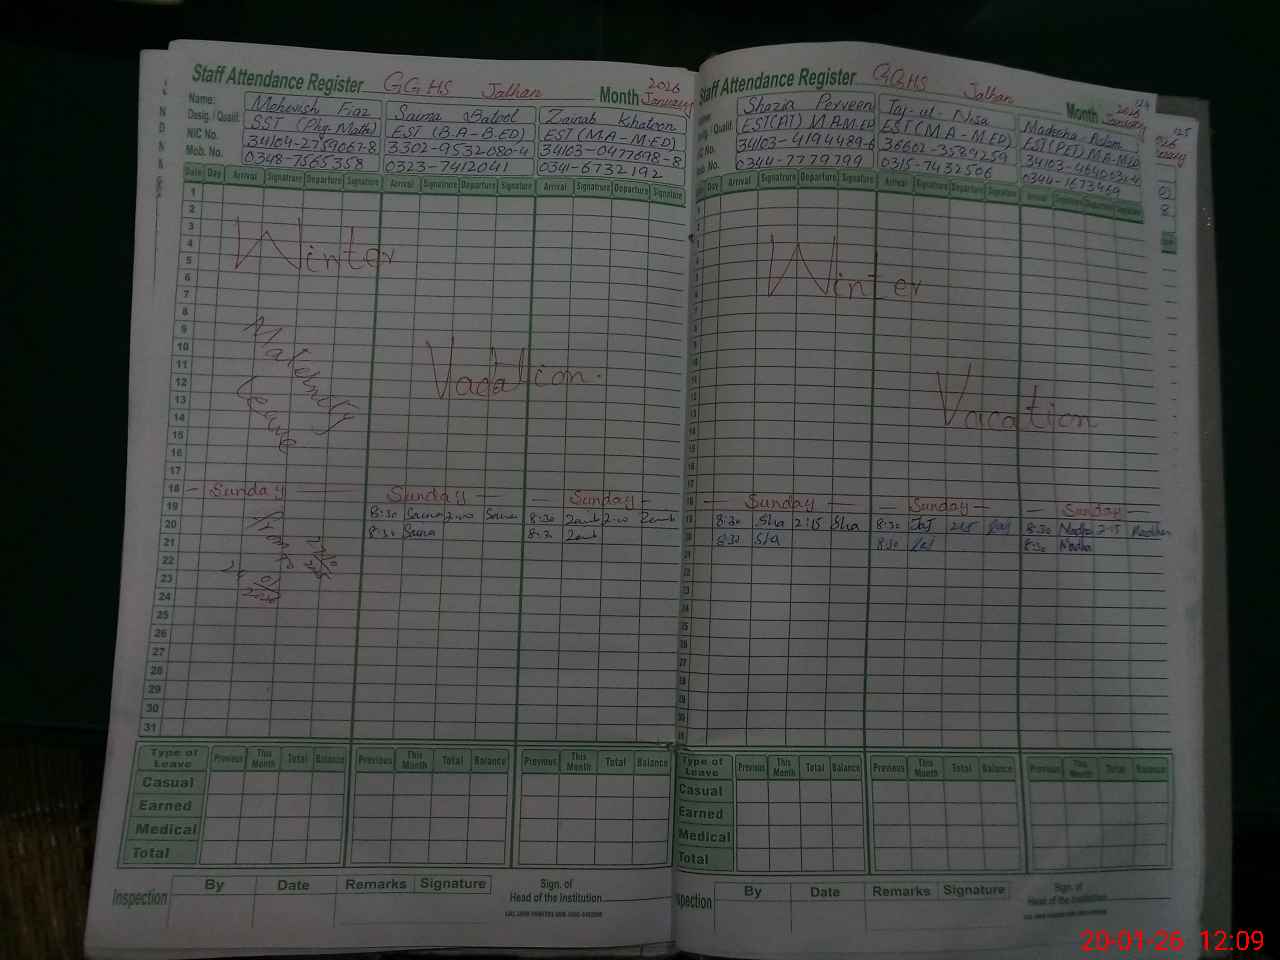 Staff Attendance Register GGHS Jalhan Month January 2026
Name: Mehwish Fiaz Saima Batool Zainab Khatoon
Desig. / Qualif. SST (Phy-Math) EST (B.A - B.ED) EST (M.A - M.ED)
NIC No. 34104-2759067-8 3302-9532080-4 34103-0477698-8
Mob. No. 0348-7565358 0323-7412041 0341-6732192
Date Day Arrival Signature Departure Signature Arrival Signature Departure Signature Arrival Signature Departure Signature
1
2
3
4
5
6
7
8
9
10
11
12
13
14
15
16
17
18 Sunday Sunday Sunday
19 8:30 Saima 2:00 Saima 8:30 Zainb 2:00 Zainb
20 8:30 Saima 8:30 Zainb
21
22
23
24
25
26
27
28
29
30
31
Winter
Vacation.
Maternity
Leave
Type of Leave Previous This Month Total Balance Previous This Month Total Balance Previous This Month Total Balance
Casual
Earned
Medical
Total
Inspection By Date Remarks Signature Sign. of
Head of the Institution
Staff Attendance Register GGHS Jalhan Month January 2026
124
Shazia Perveen Taj-ul-Nisa
EST(AT) M.A M.ED EST(M.A - M.ED)
34103-4194489-6 36602-3584259
Mob. No. 0344-7779799 0315-7432506 0344-1673469
Day Arrival Signature Departure Signature Arrival Signature Departure Signature Arrival Signature Departure Signature
Winter
Vacation
Sunday Sunday Sunday
8:30 Sha 2:15 Sha 8:30 Taj 2:15 Taj 8:30 2:15
8:30 Sha 8:30 8:30
Type of Leave Previous This Month Total Balance Previous This Month Total Balance Previous This Month Total Balance
Casual
Earned
Medical
Total
Inspection By Date Remarks Signature Sign. of
Head of the Institution
125
20-01-26 12:09